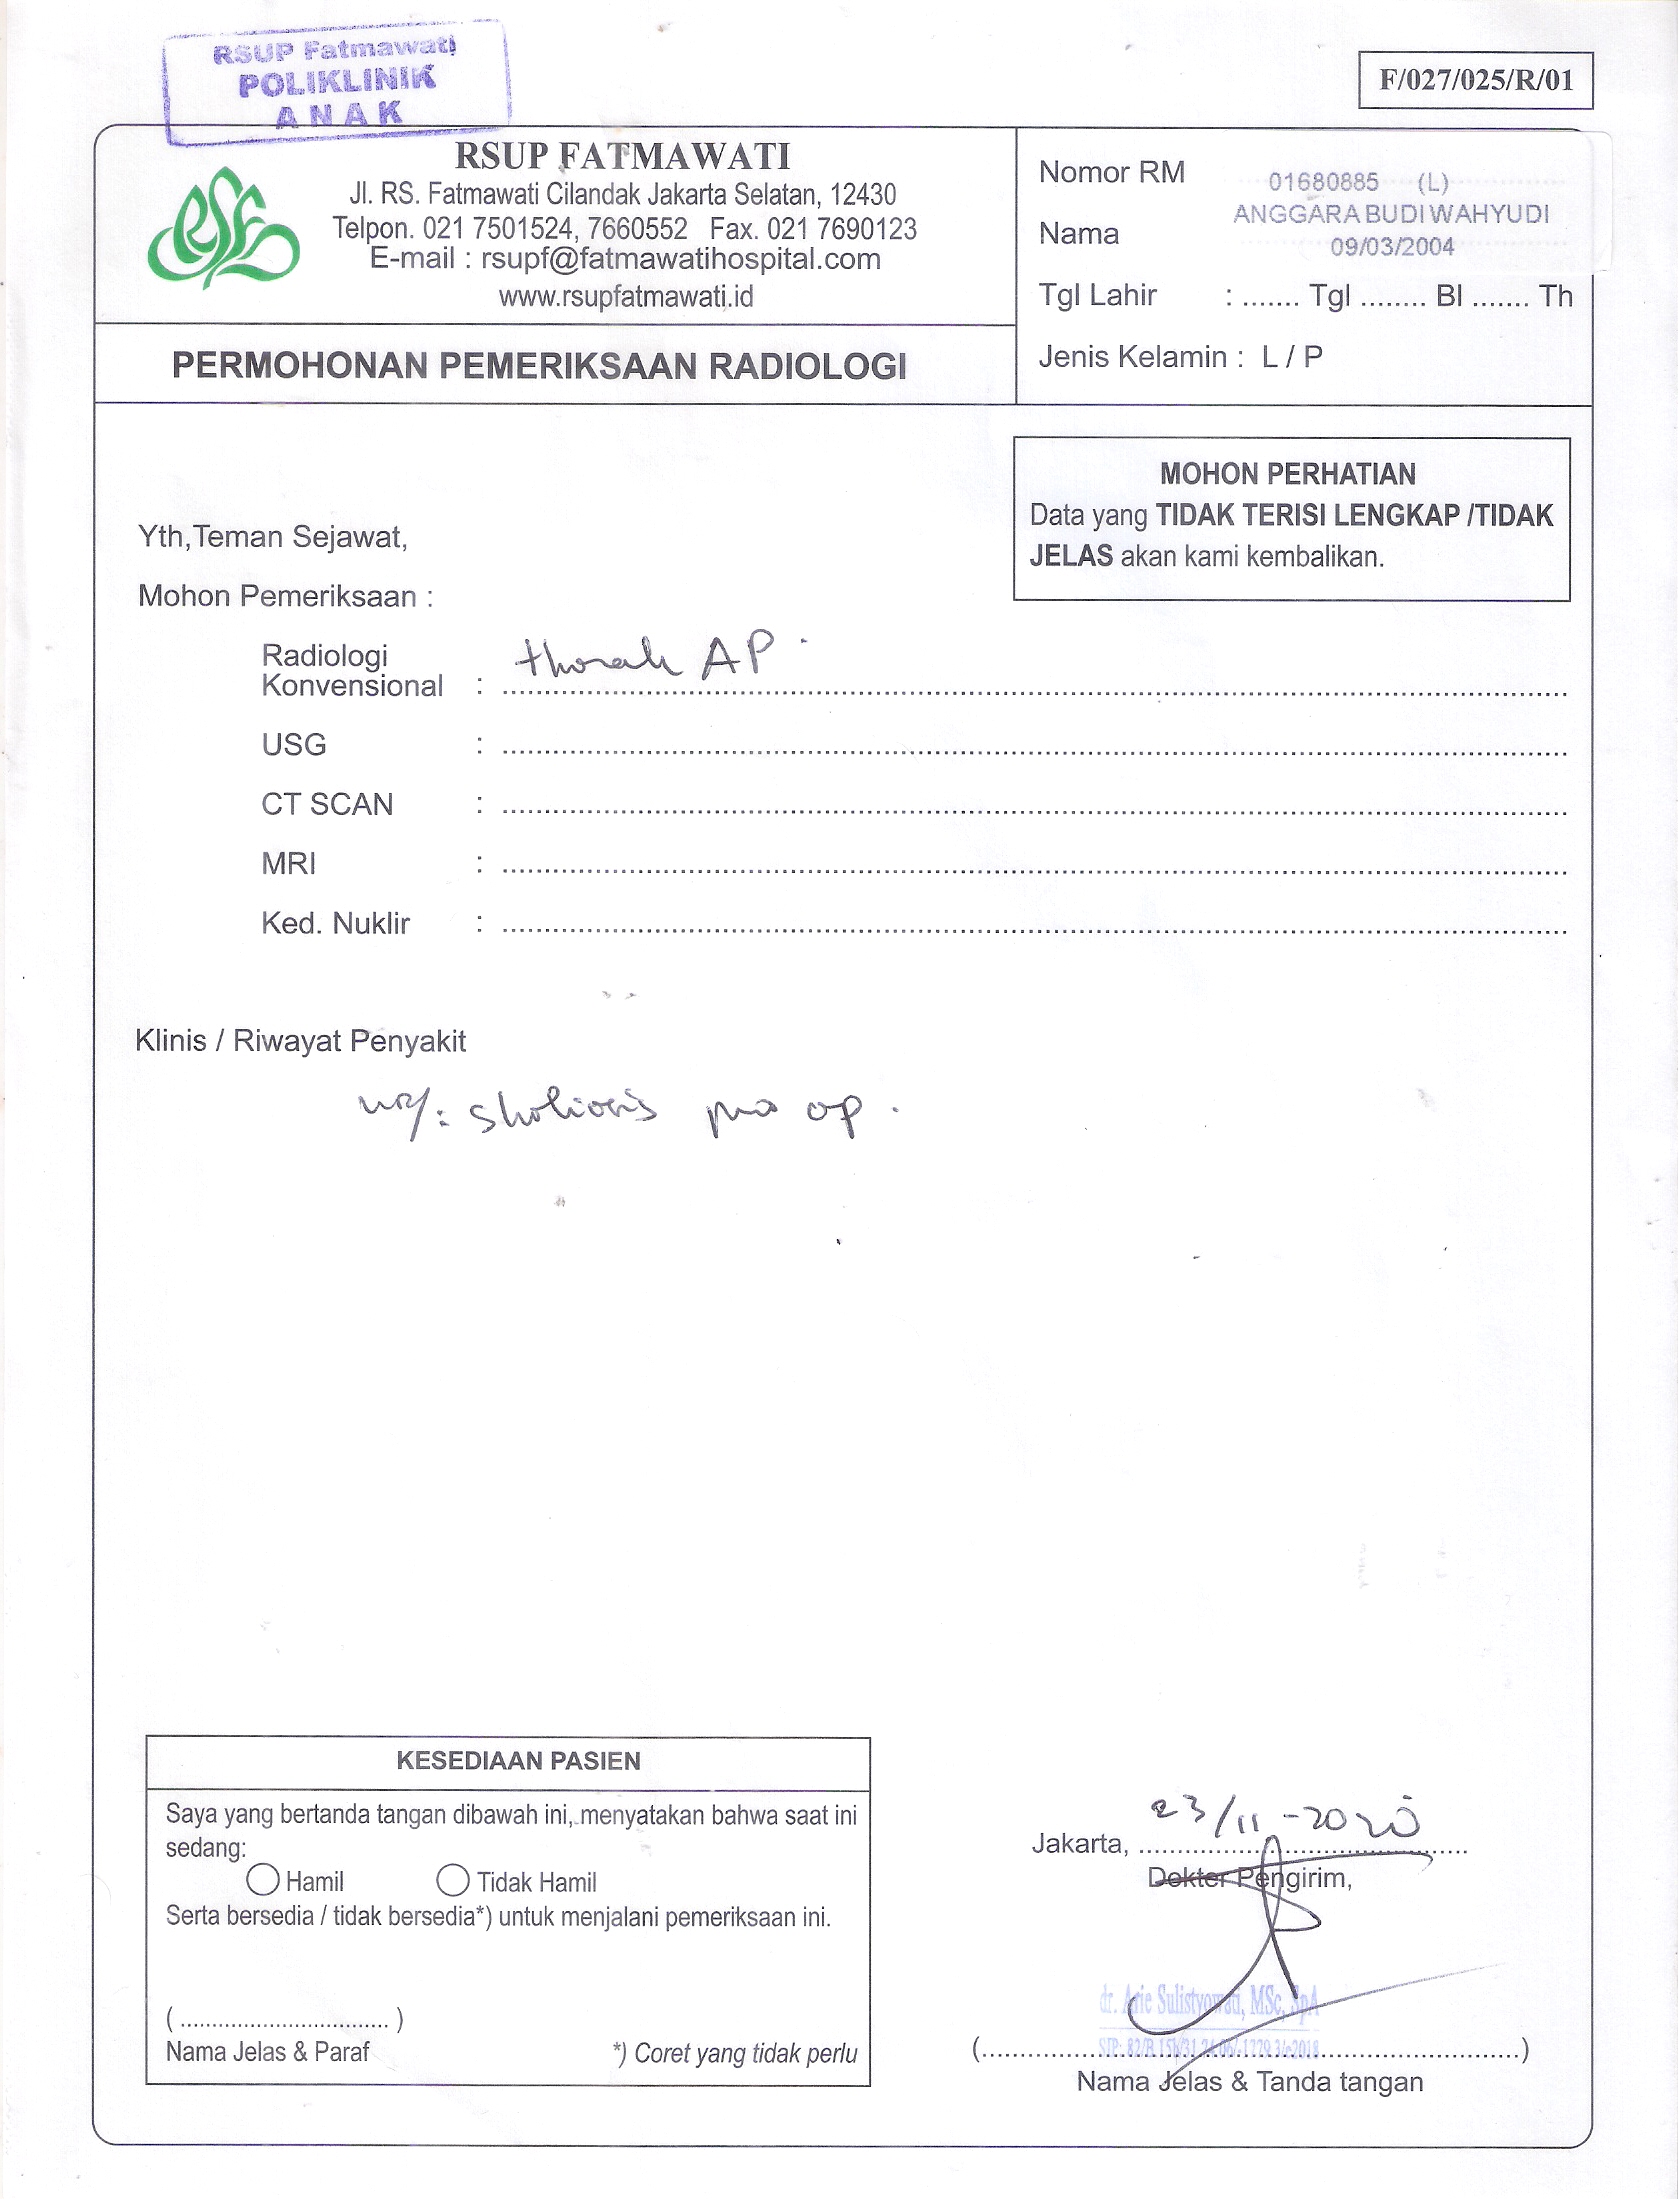 RSUP Fatmawati
POLIKLINIK
ANAK
F/027/025/R/01
RSUP FATMAWATI
Jl. RS. Fatmawati Cilandak Jakarta Selatan, 12430
Telpon. 021 7501524, 7660552 Fax. 021 7690123
E-mail : rsupf@fatmawatihospital.com
www.rsupfatmawati.id
PERMOHONAN PEMERIKSAAN RADIOLOGI
Nomor RM 01680885 (L)
Nama ANGGARA BUDI WAHYUDI
09/03/2004
Tgl Lahir : ....... Tgl ........ Bl ....... Th
Jenis Kelamin : L / P
MOHON PERHATIAN
Data yang TIDAK TERISI LENGKAP /TIDAK
JELAS akan kami kembalikan.
Yth,Teman Sejawat,
Mohon Pemeriksaan :
Radiologi
Konvensional : thorak AP
USG :
CT SCAN :
MRI :
Ked. Nuklir :
Klinis / Riwayat Penyakit
skoliosis pro op.
KESEDIAAN PASIEN
Saya yang bertanda tangan dibawah ini, menyatakan bahwa saat ini
sedang:
Hamil Tidak Hamil
Serta bersedia / tidak bersedia*) untuk menjalani pemeriksaan ini.
( ................................. )
Nama Jelas & Paraf *) Coret yang tidak perlu
Jakarta, 23/11-2020
Dokter Pengirim,
dr. Arie Sulistyowati, MSc, SpA
Nama Jelas & Tanda tangan